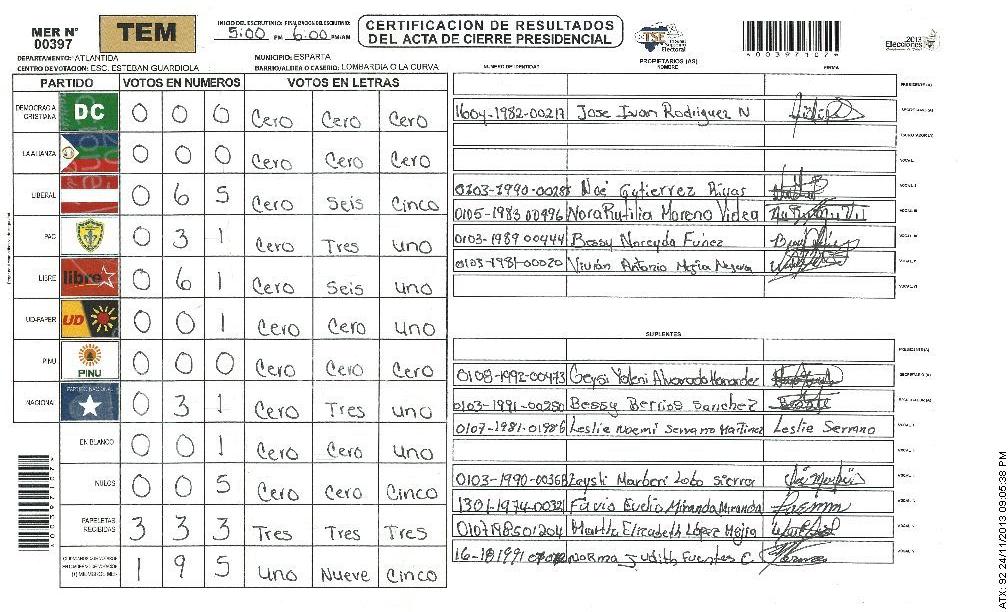 MER N° 00397
TEM
INICIO DEL ESCRUTINIO: FINALIZACION DEL ESCRUTINIO:
5:00 PM 6:00 PM/AM
CERTIFICACION DE RESULTADOS
DEL ACTA DE CIERRE PRESIDENCIAL
TSE
Tribunal Supremo Electoral
2013
Elecciones
00397107
DEPARTAMENTO: ATLANTIDA MUNICIPIO: ESPARTA
CENTRO DE VOTACION: ESC. ESTEBAN GUARDIOLA BARRIO/ALDEA O CASERIO: LOMBARDIA O LA CURVA
PARTIDO VOTOS EN NUMEROS VOTOS EN LETRAS
DEMOCRACIA CRISTIANA DC 0 0 0 Cero Cero Cero
LA ALIANZA 0 0 0 Cero Cero Cero
LIBERAL 0 6 5 Cero Seis Cinco
PAC 0 3 1 Cero Tres uno
LIBRE libre 0 6 1 Cero Seis uno
UD-FAPER UD 0 0 1 Cero Cero uno
PINU PINU 0 0 0 Cero Cero Cero
NACIONAL PARTIDO NACIONAL 0 3 1 Cero Tres uno
EN BLANCO 0 0 1 Cero Cero uno
NULOS 0 0 5 Cero Cero Cinco
PAPELETAS RECIBIDAS 3 3 3 Tres Tres Tres
1 9 5 uno Nueve Cinco
PROPIETARIOS (AS)
NUMERO DE IDENTIDAD NOMBRE FIRMA
PRESIDENTE (A)
1604-1982-00217 Jose Ivan Rodriguez N SECRETARIO (A)
ESCRUTADOR (A)
VOCAL I
0103-1990-00285 Noé Gutierrez Rivas VOCAL II
0105-1983 00496 Nora Rutilia Moreno Videa VOCAL III
0103-1989 00444 Bessy Noreyda Funez VOCAL IV
0103-1981-00020 Vivian Antonio Mejia VOCAL V
VOCAL VI
SUPLENTES
PRESIDENTE (A)
0108-1992-00473 Geysi Yoleni Alvarado Hernandez SECRETARIO (A)
0103-1991-00250 Bessy Berrios Sanchez ESCRUTADOR (A)
0107-1981-01986 Leslie Noemi Serrano Martinez Leslie Serrano VOCAL I
VOCAL II
0103-1990-00368 Marberi Lobo Sierra
1301-1974-00321 Favio Euelio Miranda Miranda
Martha Elizabeth López Mejia
16-181991 Norma Judith Fuentes C.
00397107
ATX: 92 24/11/2013 09:05:38 PM